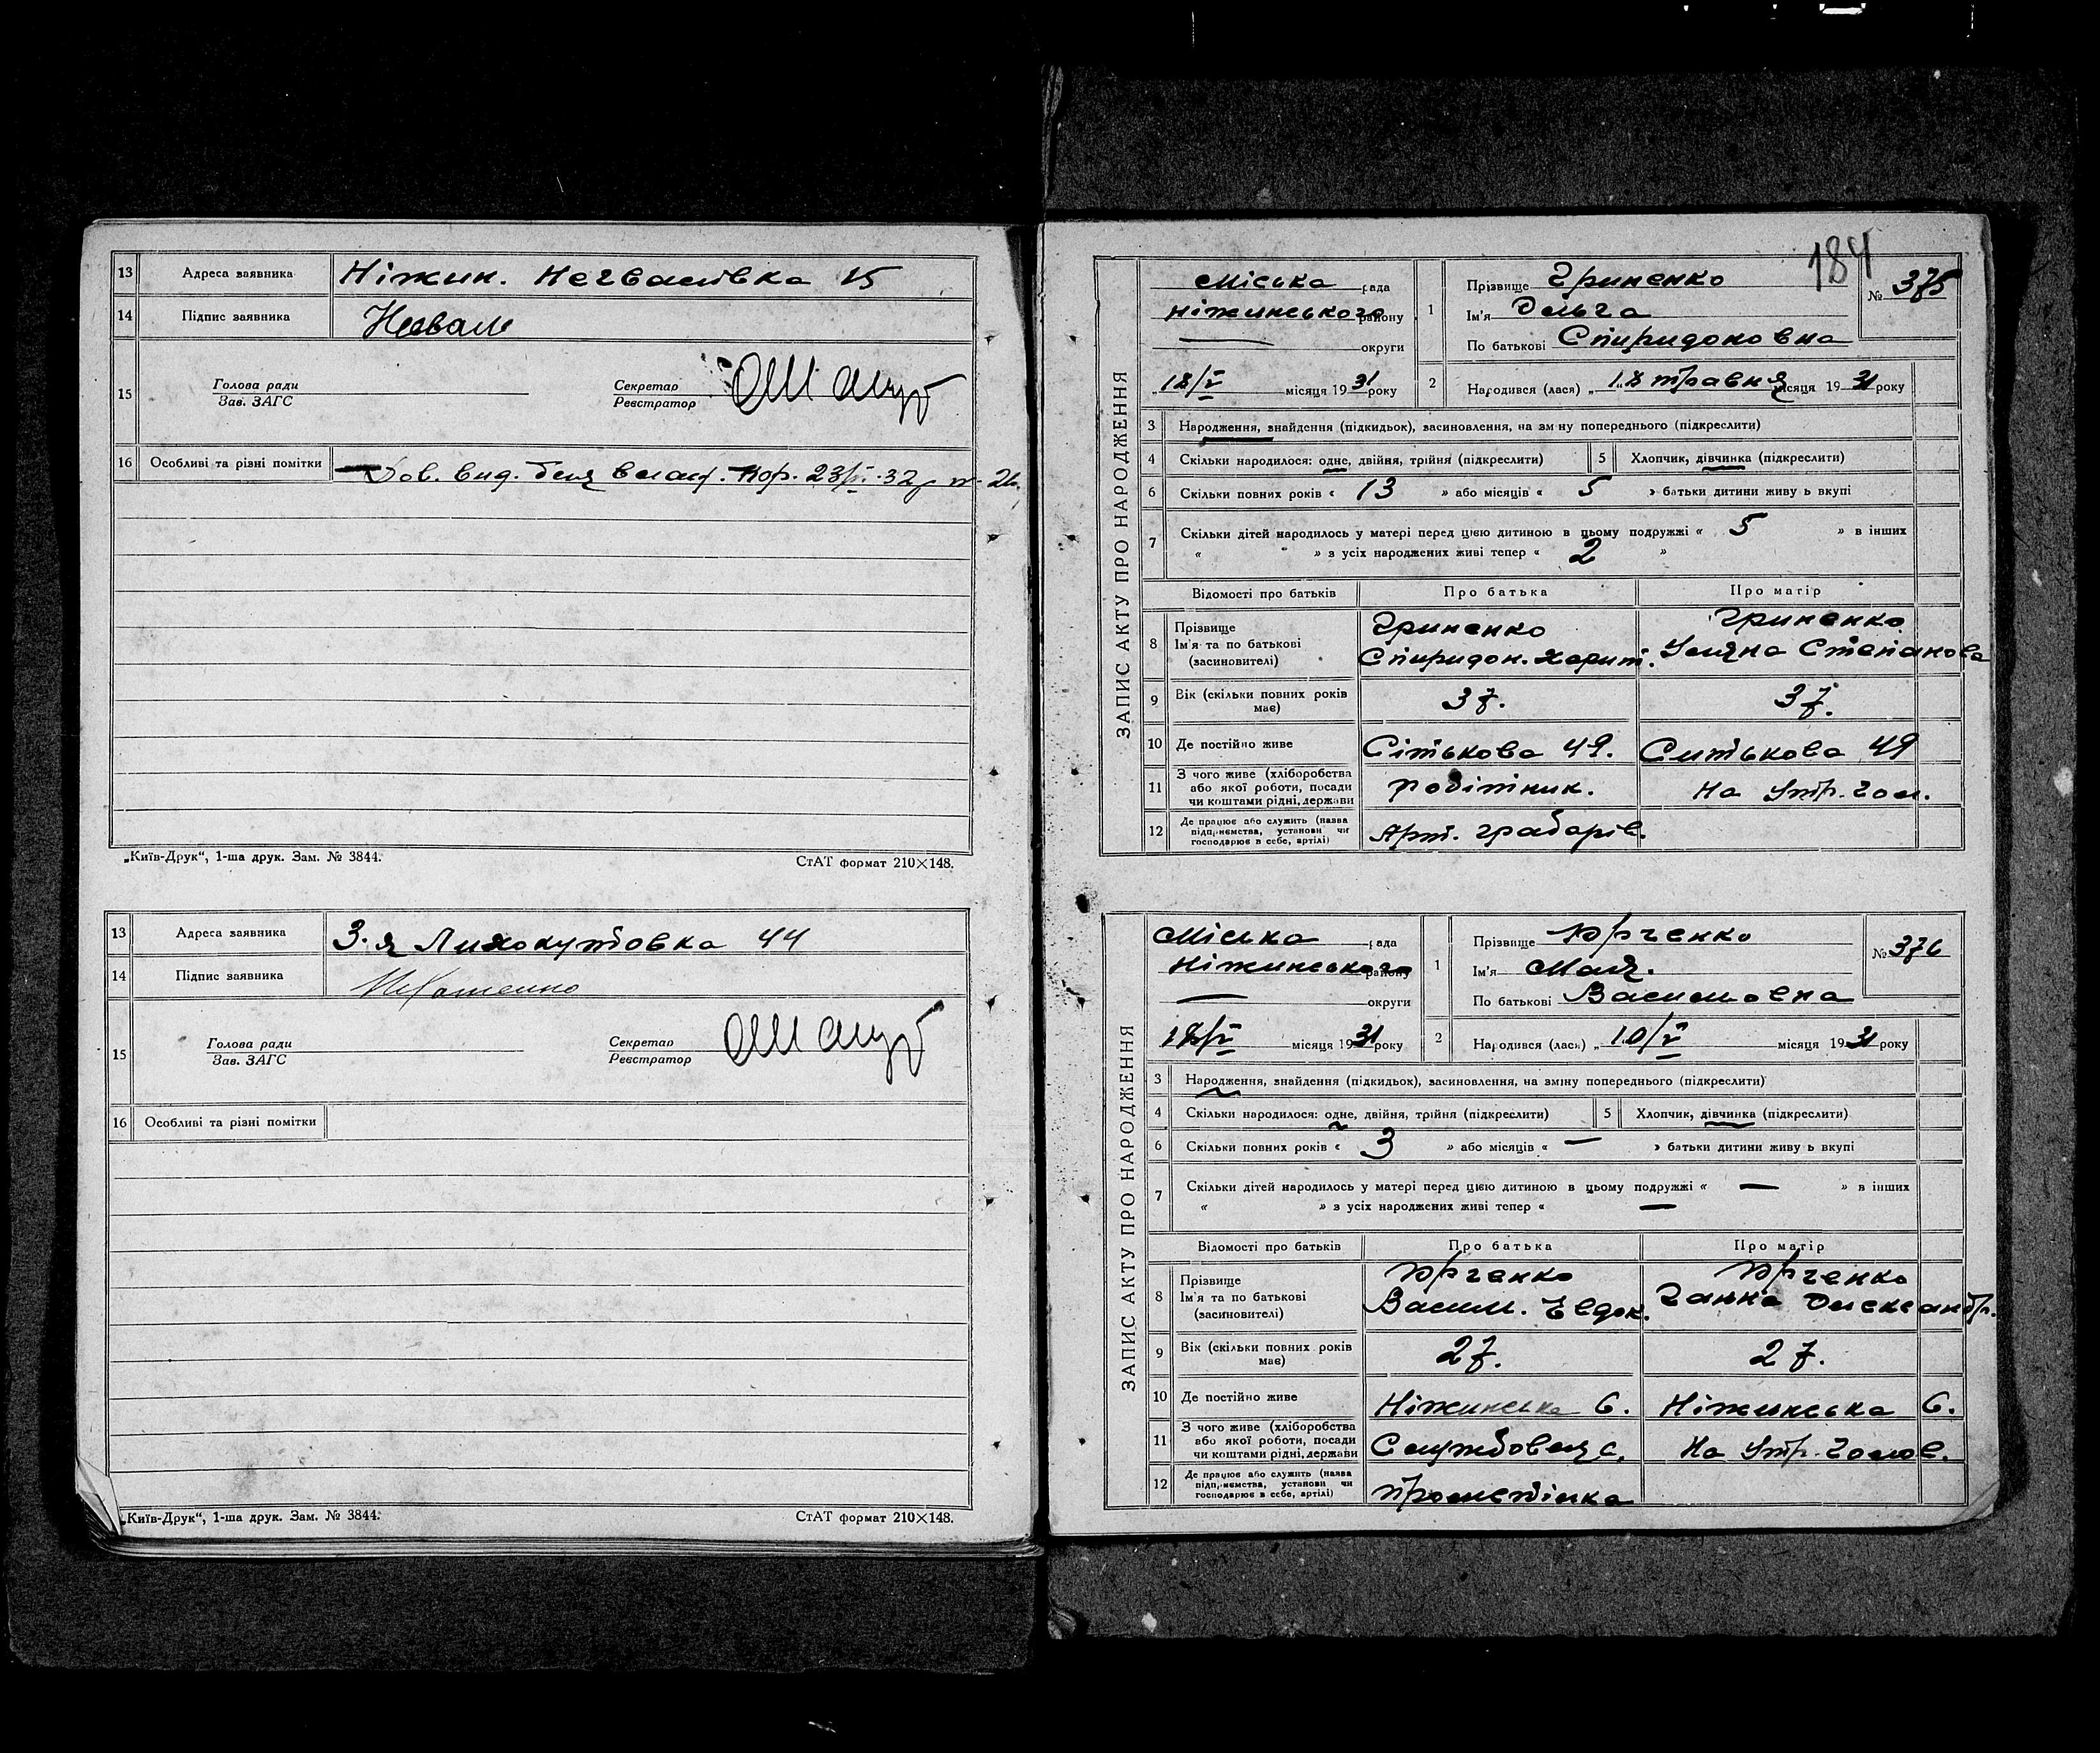 13 Адреса заявника Ніжин. Негваливка 15
14 Підпис заявника
15 Голова ради Секретар
Зав. ЗАГС Реєстратор
16 Особливі та різні помітки Дов. вид. 32
„Київ-Друк“, 1-ша друк. Зам. № 3844. СтАТ формат 210×148.
13 Адреса заявника 3-я Лихокутовка 44
14 Підпис заявника
15 Голова ради Секретар
Зав. ЗАГС Реєстратор
16 Особливі та різні помітки
„Київ-Друк“, 1-ша друк. Зам. № 3844. СтАТ формат 210×148.
184
ЗАПИС АКТУ ПРО НАРОДЖЕННЯ
Міська рада
Ніжинського району
— округи
„18/V місяця 1931 року
1 Прізвище Гриненко № 375
Ім'я Ольга
По батькові Спиридоновна
2 Народився (лася) „18 травня місяця 1931 року
3 Народження, знайдення (підкидьок), засиновлення, на зміну попереднього (підкреслити)
4 Скільки народилося: одне, двійня, трійня (підкреслити) 5 Хлопчик, дівчинка (підкреслити)
6 Скільки повних років « 13 » або місяців « 5 » батьки дитини живу ь вкупі
7 Скільки дітей народилось у матері перед цією дитиною в цьому подружжі « 5 » в інших
« » з усіх народжених живі тепер « 2 »
Відомості про батьків Про батька Про матір
8 Прізвище Гриненко Гриненко
Ім'я та по батькові Спиридон. Харит. Уляна Степанова
(засиновителі)
9 Вік (скільки повних років має) 37. 37.
10 Де постійно живе Сітькова 49. Ситькова 49
11 З чого живе (хліборобства або якої роботи, посади чи коштами рідні, держави робітник. На утр. гол.
12 Де працює або служить (назва підприємства, установи чи господарює в себе, артілі) Арт. грабарів.
ЗАПИС АКТУ ПРО НАРОДЖЕННЯ
Міська рада
Ніжинського району
— округи
18/V місяця 1931 року
1 Прізвище Юрченко № 376
Ім'я Мая.
По батькові Васильовна
2 Народився (лася) „10/V місяця 1931 року
3 Народження, знайдення (підкидьох), засиновлення, на зміну попереднього (підкреслити)
4 Скільки народилося: одне, двійня, трійня (підкреслити) 5 Хлопчик, дівчинка (підкреслити)
6 Скільки повних років « 3 » або місяців « — » батьки дитини живу ь вкупі
7 Скільки дітей народилось у матері перед цією дитиною в цьому подружжі « — » в інших
« » з усіх народжених живі тепер « —
Відомості про батьків Про батька Про матір
8 Прізвище Юрченко Юрченко
Ім'я та по батькові Васил. Евдок. Ганна Олександр.
(засиновителі)
9 Вік (скільки повних років має) 27. 27.
10 Де постійно живе Ніжинська 6. Ніжинська 6.
11 З чого живе (хліборобства або якої роботи, посади чи коштами рідні, держави Службовець. На утр. голов.
12 Де працює або служить (назва підприємства, установи чи господарює в себе, артілі)